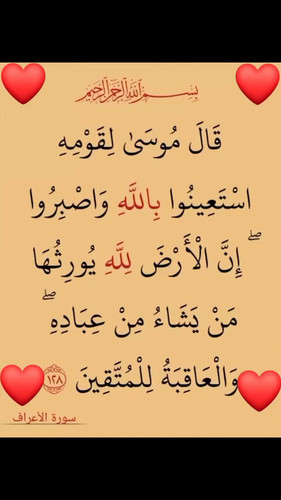 بِسْمِ اللَّهِ الرَّحْمَٰنِ الرَّحِيمِ
قَالَ مُوسَىٰ لِقَوْمِهِ
اسْتَعِينُوا بِاللَّهِ وَاصْبِرُوا
ۖ إِنَّ الْأَرْضَ لِلَّهِ يُورِثُهَا
مَنْ يَشَاءُ مِنْ عِبَادِهِ ۖ
وَالْعَاقِبَةُ لِلْمُتَّقِينَ ١٢٨
سورة الأعراف